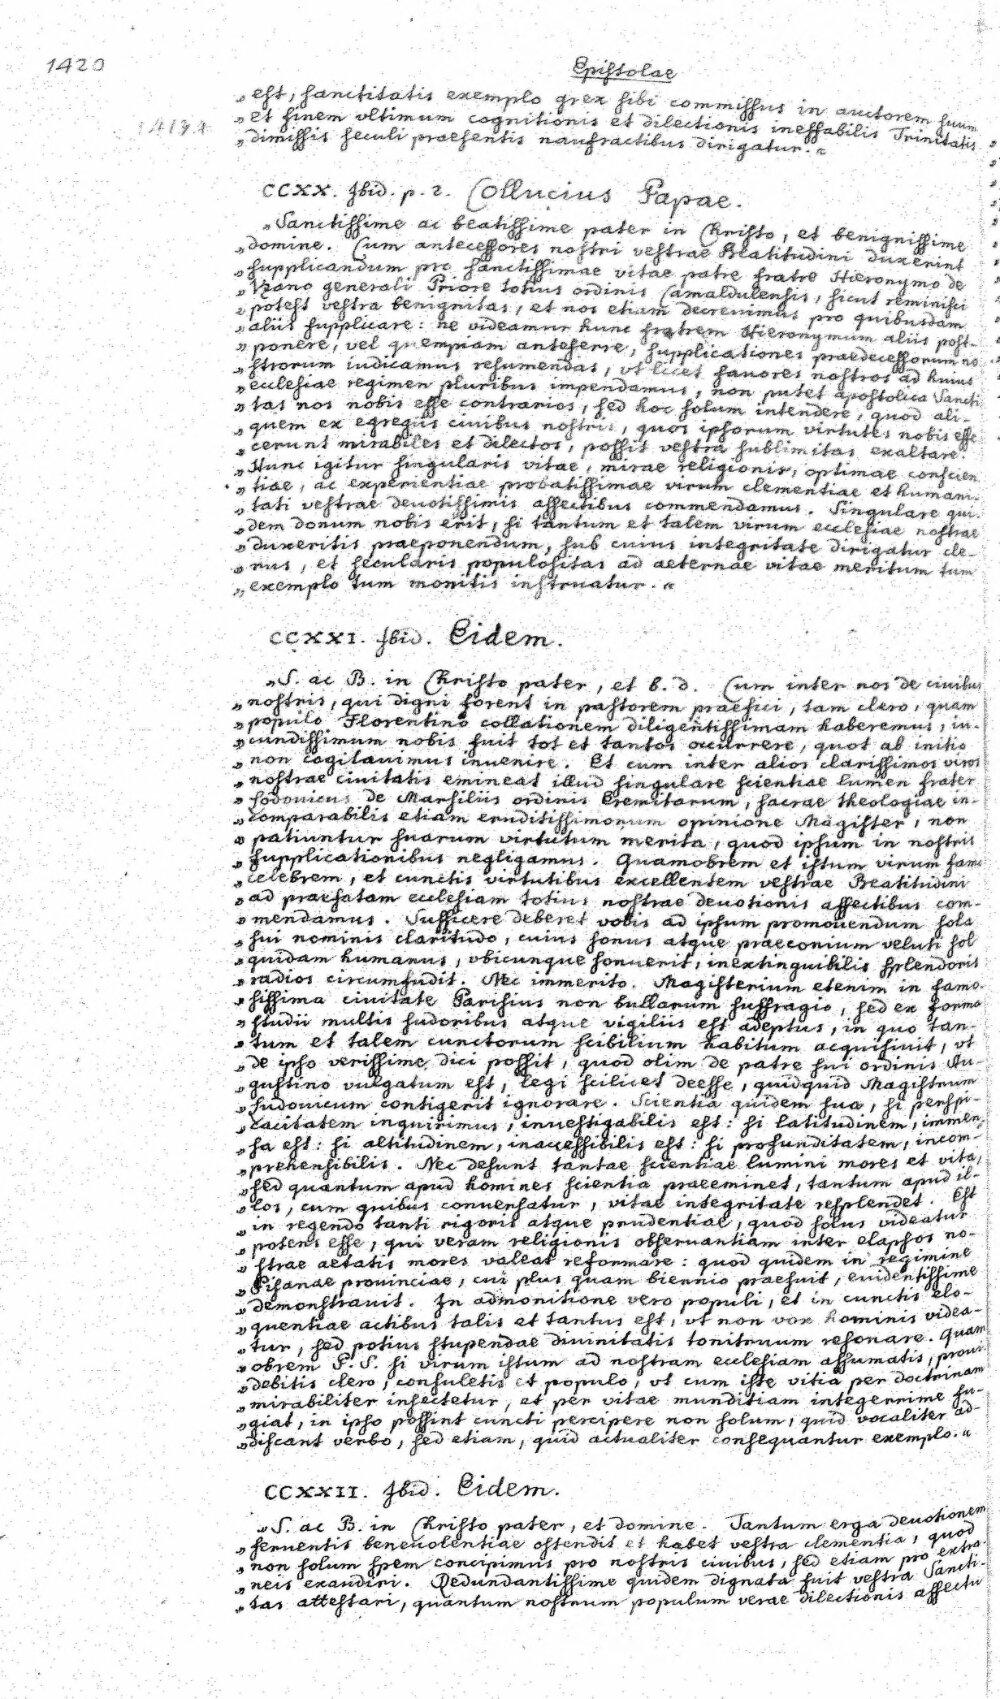 1420
Epistolae
„ est, sanctitatis exemplo grex sibi commissus in auctorem suum
„ et finem vltimum cognitionis et dilectionis ineffabilis Trinitatis
„ dimissis seculi praesentis naufractibus dirigatur.“
CCXX. Ibid. p. 2. Collucius Papae.
„Sanctissime ac beatissime pater in Christo, et benignissime
„ domine. Cum antecessores nostri vestrae Beatitudini duxerint
„ supplicandum pro sanctissimae vitae patre fratre Hieronymo de
„ Vzano generali Priore totius ordinis Camaldulensis, sicut reminisci
„ potest vestra benignitas, et nos etiam decreuimus pro quibusdam
„ aliis supplicare: ne videamur hunc fratrem Hieronymum aliis post-
„ ponere, vel quempiam anteferre, supplicationes praedecessorum no
„ strorum iudicamus resumendas, vt licet fauores nostros ad huius
„ ecclesiae regimen pluribus impendamus, non putet apostolica Sancti
„ tas nos nobis esse contrarios, sed hoc solum intendere, quod ali-
„ quem ex egregiis ciuibus nostris, quos ipsorum virtutes nobis effe
„ cerunt mirabiles et dilectos, possit vestra sublimitas exaltare.
„ Hunc igitur singularis vitae, mirae religionis, optimae conscien
„ tiae, ac experientiae probatissimae virum clementiae et humani-
„ tati vestrae deuotissimis affectibus commendamus. Singulare qui-
„ dem donum nobis erit, si tantum et talem virum ecclesiae nostrae
„ duxeritis praeponendum, sub cuius integritate dirigatur cle-
„ rus, et secularis populositas ad aeternae vitae meritum tum
„ exemplo tum monitis instruatur.“
CCXXI. Ibid. Eidem.
„S. ac B. in Christo pater, et b. d. Cum inter nos de ciuibus
„ nostris, qui digni forent in pastorem praefici, tam clero, quam
„ populo Florentino collationem diligentissimam haberemus, iu-
„ cundissimum nobis fuit tot et tantos occurrere, quot ab initio
„ non cogitauimus inuenire. Et cum inter alios clarissimos viros
„ nostrae ciuitatis emineat illud singulare scientiae lumen frater
„ Lodouicus de Marsiliis ordinis Eremitarum, sacrae theologiae in-
„ comparabilis etiam eruditissimorum opinione Magister, non
„ patiuntur suarum virtutum merita, quod ipsum in nostris
„ supplicationibus negligamus. Quamobrem et istum virum fama
„ celebrem, et cunctis virtutibus excellentem vestrae Beatitudini
„ ad praefatam ecclesiam totius nostrae deuotionis affectibus com-
„ mendamus. Sufficere deberet vobis ad ipsum promouendum sola
„ sui nominis claritudo, cuius sonus atque praeconium veluti sol
„ quidam humanus, vbicunque sonuerit, inextinguibilis splendoris
„ radios circumfudit. Nec immerito. Magisterium etenim in famo-
„ sissima ciuitate Parisius non bullarum suffragio, sed ex forma
„ studii multis sudoribus atque vigiliis est adeptus, in quo tan-
„ tum et talem cunctorum scibilium habitum acquisiuit, vt
„ de ipso verissime dici possit, quod olim de patre sui ordinis Au-
„ gustino vulgatum est, legi scilicet deesse, quidquid Magistrum
„ Ludouicum contigerit ignorare. Scientia quidem sua, si perspi-
„ cacitatem inquirimus, inuestigabilis est: si latitudinem, immen-
„ sa est: si altitudinem, inaccessibilis est: si profunditatem, incom-
„ prehensibilis. Nec desunt tantae scientiae lumini mores et vita,
„ sed quantum apud homines scientia praeeminet, tantum apud il-
„ los, cum quibus conuersatur, vitae integritate resplendet. Est
„ in regendo tanti rigoris atque prudentiae, quod solus videatur
„ potens esse, qui veram religionis obseruantiam inter elapsos no-
„ strae aetatis mores valeat reformare: quod quidem in regimine
„ Pisanae prouinciae, cui plus quam biennio praefuit, euidentissime
„ demonstrauit. In admonitione vero populi, et in cunctis elo-
„ quentiae actibus talis et tantus est, vt non vox hominis videa-
„ tur, sed potius stupendae diuinitatis tonitruum resonare. Quam
„ obrem P. S. si virum istum ad nostram ecclesiam assumatis, proui-
„ debitis clero, consuletis et populo, vt cum iste vitia per doctrinam
„ mirabiliter insectetur, et per vitae munditiam integerrime fu-
„ giat, in ipso possint cuncti percipere non solum, quid vocaliter ad-
„ discant verbo, sed etiam, quid actualiter consequantur exemplo.“
CCXXII. Ibid. Eidem.
„S. ac B. in Christo pater, et domine. Tantum erga deuotionem
„ feruentis beneuolentiae ostendit et habet vestra clementia, quod
„ non solum spem concipimus pro nostris ciuibus, sed etiam pro extra-
„ neis exaudiri. Redundantissime quidem dignata fuit vestra Sancti-
„ tas attestari, quantum nostrum populum verae dilectionis affectu